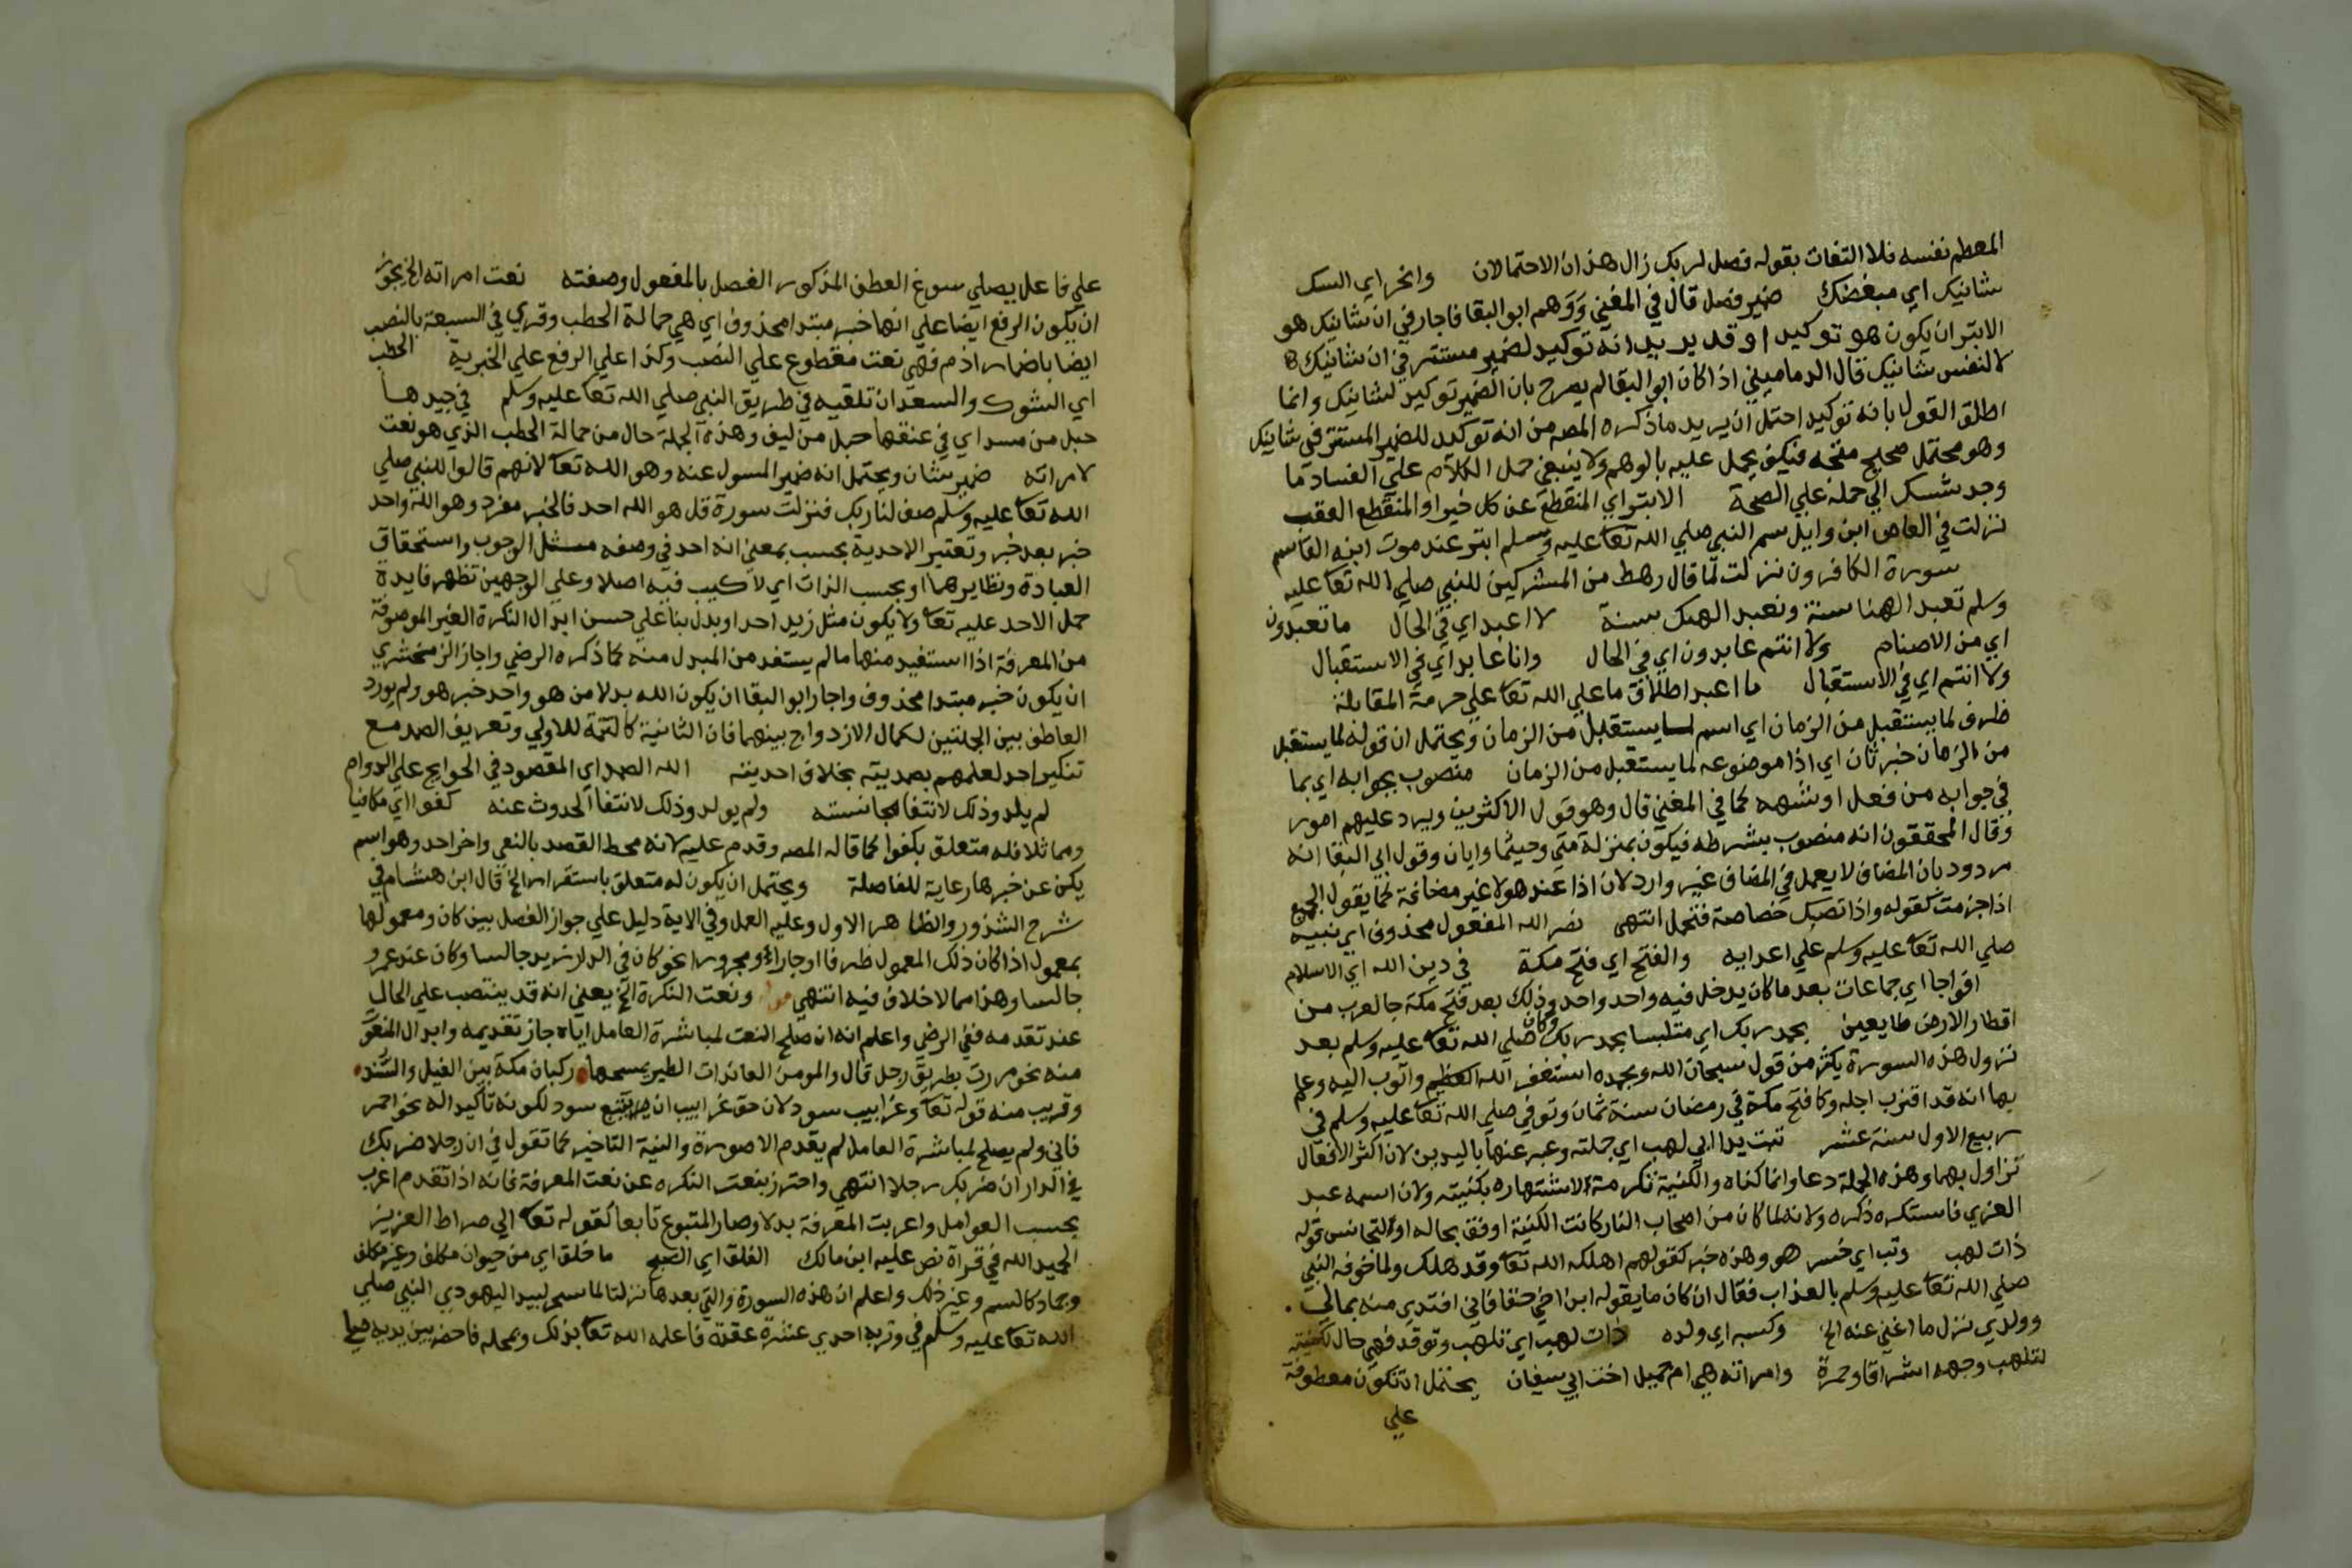 المعظم نفسه فلا التفات بقوله فصل لربك زال هذان الاحتمالان وانحر اي النسك
شانيك اي مبغضك ضمير فصل قال في المغني ووهم ابو البقا فاجاز في ان شانيك هو
الابتر ان يكون هو توكيدا وقد يريد انه توكيد لضمير مستتر في ان شانيك
لا لنفس شانيك قال الدماميني اذا كان ابو البقا لم يصرح بان الضمير توكيد لشانيك وانما
اطلق القول بانه توكيد احتمل ان يريد ما ذكره المصه من انه توكيد للضمير المستتر في شانيك
وهو محتمل صحيح متجه فكيف يحمل عليه بالوهم ولا ينبغي حمل الكلام علي الفساد ما
وجد سبيل الي حمله علي الصحة الابتر اي المنقطع عن كل خير او المنقطع العقب
نزلت في العاص ابن وايل سم النبي صلي الله تعا عليه وسلم ابتر عند موت ابنه القاسم
سورة الكافرون نزلت لما قال رهط من المشركين للنبي صلي الله تعا عليه
وسلم تعبد الهنا سنة ونعبد الهك سنة لا اعبد اي في الحال ما تعبدون
اي من الاصنام ولا انتم عابدون اي في الحال وانا عابد اي في الاستقبال
ولا انتم اي في الاستقبال ما اعبد اطلاق ما علي الله تعا علي حرمة المقابلة
ظرف لما يستقبل من الزمان اي اسم لما يستقبل من الزمان ويحتمل ان قوله لما يستقبل
من الزمان خبر ثان اي اذا موضوعه لما يستقبل من الزمان منصوب بجوابه اي بما
في جوابه من فعل او شبهه كما في المغني قال وهو قول الاكثرين ويرد عليهم امور
وقال المحققون انه منصوب بشرطه فيكون بمنزلة متي وحيثما وايان وقول ابي البقا انه
مردود بان المضاف لا يعمل في المضاف غير وارد لان اذا عند هولا غير مضافة كما يقول الجميع
اذا جزمت كقوله واذا تصبك خصاصة فتجمل انتهي نصر الله المفعول محذوف اي نبيه
صلي الله تعا عليه وسلم علي اعدايه والفتح اي فتح مكة في دين الله اي الاسلام
افواجا اي جماعات بعد ما كان يدخل فيه واحد واحد وذلك بعد فتح مكة جا العرب من
اقطار الارض طايعين بحمد ربك اي متلبسا بحمد ربك وكان صلي الله تعا عليه وسلم بعد
نزول هذه السورة يكثر من قول سبحان الله وبحمده استغفر الله العظيم واتوب اليه وعلم
بها انه قد اقترب اجله وكا فتح مكة في رمضان سنة ثمان وتوفي صلي الله تعا عليه وسلم في
ربيع الاول سنة عشر تبت يدا ابي لهب اي جملته وعبر عنها باليدين لان اكثر الافعال
تزاول بهما وهذه الجملة دعا وانما كناه والكنية تكرمة لاشتهاره بكنيته ولان اسمه عبد
العزي فاستكره ذكره ولانه لما كان من اصحاب النار كانت الكنية اوفق بحاله او لتجانس قوله
ذات لهب وتب اي خسر هو وهذه خبر كقولهم اهلكه الله تعا وقد هلك ولما خوفه النبي
صلي الله تعا عليه وسلم بالعذاب فقال ان كان ما يقوله ابن اخي حقا فاني افتدي منه بمالي
وولدي نزل ما اغني عنه الخ وكسبه اي ولده ذات لهب اي تلهب وتوقد فهي حال لكنيته
لتلهب وجهه اشراقا وحمرة وامراته هي ام جميل اخت ابي سفيان يحتمل ان تكون معطوفة
علي
علي فاعل يصلي سوغ العطف المذكور الفصل بالمفعول وصفته نعت امراته الخ يجوز
ان يكون الرفع ايضا علي انها خبر مبتدا محذوف اي هي حمالة الحطب وقري في السبعة بالنصب
ايضا باضمار اذم فهي نعت مقطوع علي النصب وكذا علي الرفع علي الخبرية الحطب
اي الشوك والسعدان تلقيه في طريق النبي صلي الله تعا عليه وسلم في جيدها
حبل من مسد اي في عنقها حبل من ليف وهذه الجملة حال من حمالة الحطب الذي هو نعت
لامراته ضمير شان ويحتمل انه ضمير المسول عنه وهو الله تعا لانهم قالوا للنبي صلي
الله تعا عليه وسلم صف لنا ربك فنزلت سورة قل هو الله احد فالخبر مفرد وهو الله واحد
خبر بعد خبر وتعتبر الاحدية بحسب بمعني انه احد في وصفه مثل الوجوب واستحقاق
العبادة ونظايرهما او بحسب الذات اي لا تركيب فيه اصلا وعلي الوجهين تظهر فايدة
حمل الاحد عليه تعا ولا يكون مثل زيد احد او بدل بنا علي حسن ابدال النكرة الغير الموصوفة
من المعرفة اذا استفيد منها ما لم يستفد من المبدل منه كما ذكره الرضي واجاز الزمخشري
ان يكون خبر مبتدا محذوف واجاز ابو البقا ان يكون الله بدلا من هو واحد خبر هو ولم يورد
العاطف بين الجملتين لكمال الازدواج بينهما فان الثانية كالتتمة للاولي وتعريف الصمد مع
تنكير احد لعلمهم بصمديته بخلاف احديته الله الصمد اي المقصود في الحوايج علي الدوام
لم يلد وذلك لانتفا مجانسته ولم يولد وذلك لانتفا الحدوث عنه كفوا اي مكافيا
ومماثلا فله متعلق بكفوا كما قاله المصه وقدم عليه لانه محط القصد بالنفي واخر احد وهو اسم
يكن عن خبرها رعاية للفاصلة ويحتمل ان يكون له متعلق باستقرار الخ قال ابن هشام في
شرح الشذور والظاهر الاول وعليه العمل وفي الاية دليل علي جواز الفصل بين كان ومعمولها
بمعمول اذا كان ذلك المعمول ظرفا او جارا ومجرورا نحو كان في الدار زيد جالسا وكان عند عمرو
جالسا وهذا مما لا خلاف فيه انتهي ونعت النكرة الخ يعني انه قد ينتصب علي الحال
عند تقدمه ففي الرضي واعلم انه ان صلح النعت لمباشرة العامل اياه جاز تقديمه وابدال المنعوت
منه نحو مررت بظريف رجل قال والمومن العائذات الطير يمسحها ركبان مكة بين الغيل والسند
وقريب منه قوله تعا وغرابيب سود لان حق غرابيب ان يتبع سود لكونه تاكيدا له نحو احمر
قاني ولم يصلح لمباشرة العامل لم يقدم الا صورة والنية التاخير كما تقول في ان رجلا ضربك
في الدار ان ضربك رجلا انتهي واحترز بنعت النكره عن نعت المعرفة فانه اذا تقدم اعرب
بحسب العوامل واعربت المعرفة بدلا وصار المتبوع تابعا كقوله تعا الي صراط العزيز
الحميد الله في قراة نص عليه ابن مالك الفلق اي الصبح ما خلق اي من حيوان مكلف وغير مكلف
وجماد كالسم وغير ذلك واعلم ان هذه السورة والتي بعدها نزلتا لما سحر لبيد اليهودي النبي صلي
الله تعا عليه وسلم في وتر به احدي عشرة عقدة فاعلمه الله تعا بذلك وبمحله فاحضر بين يديه صلي